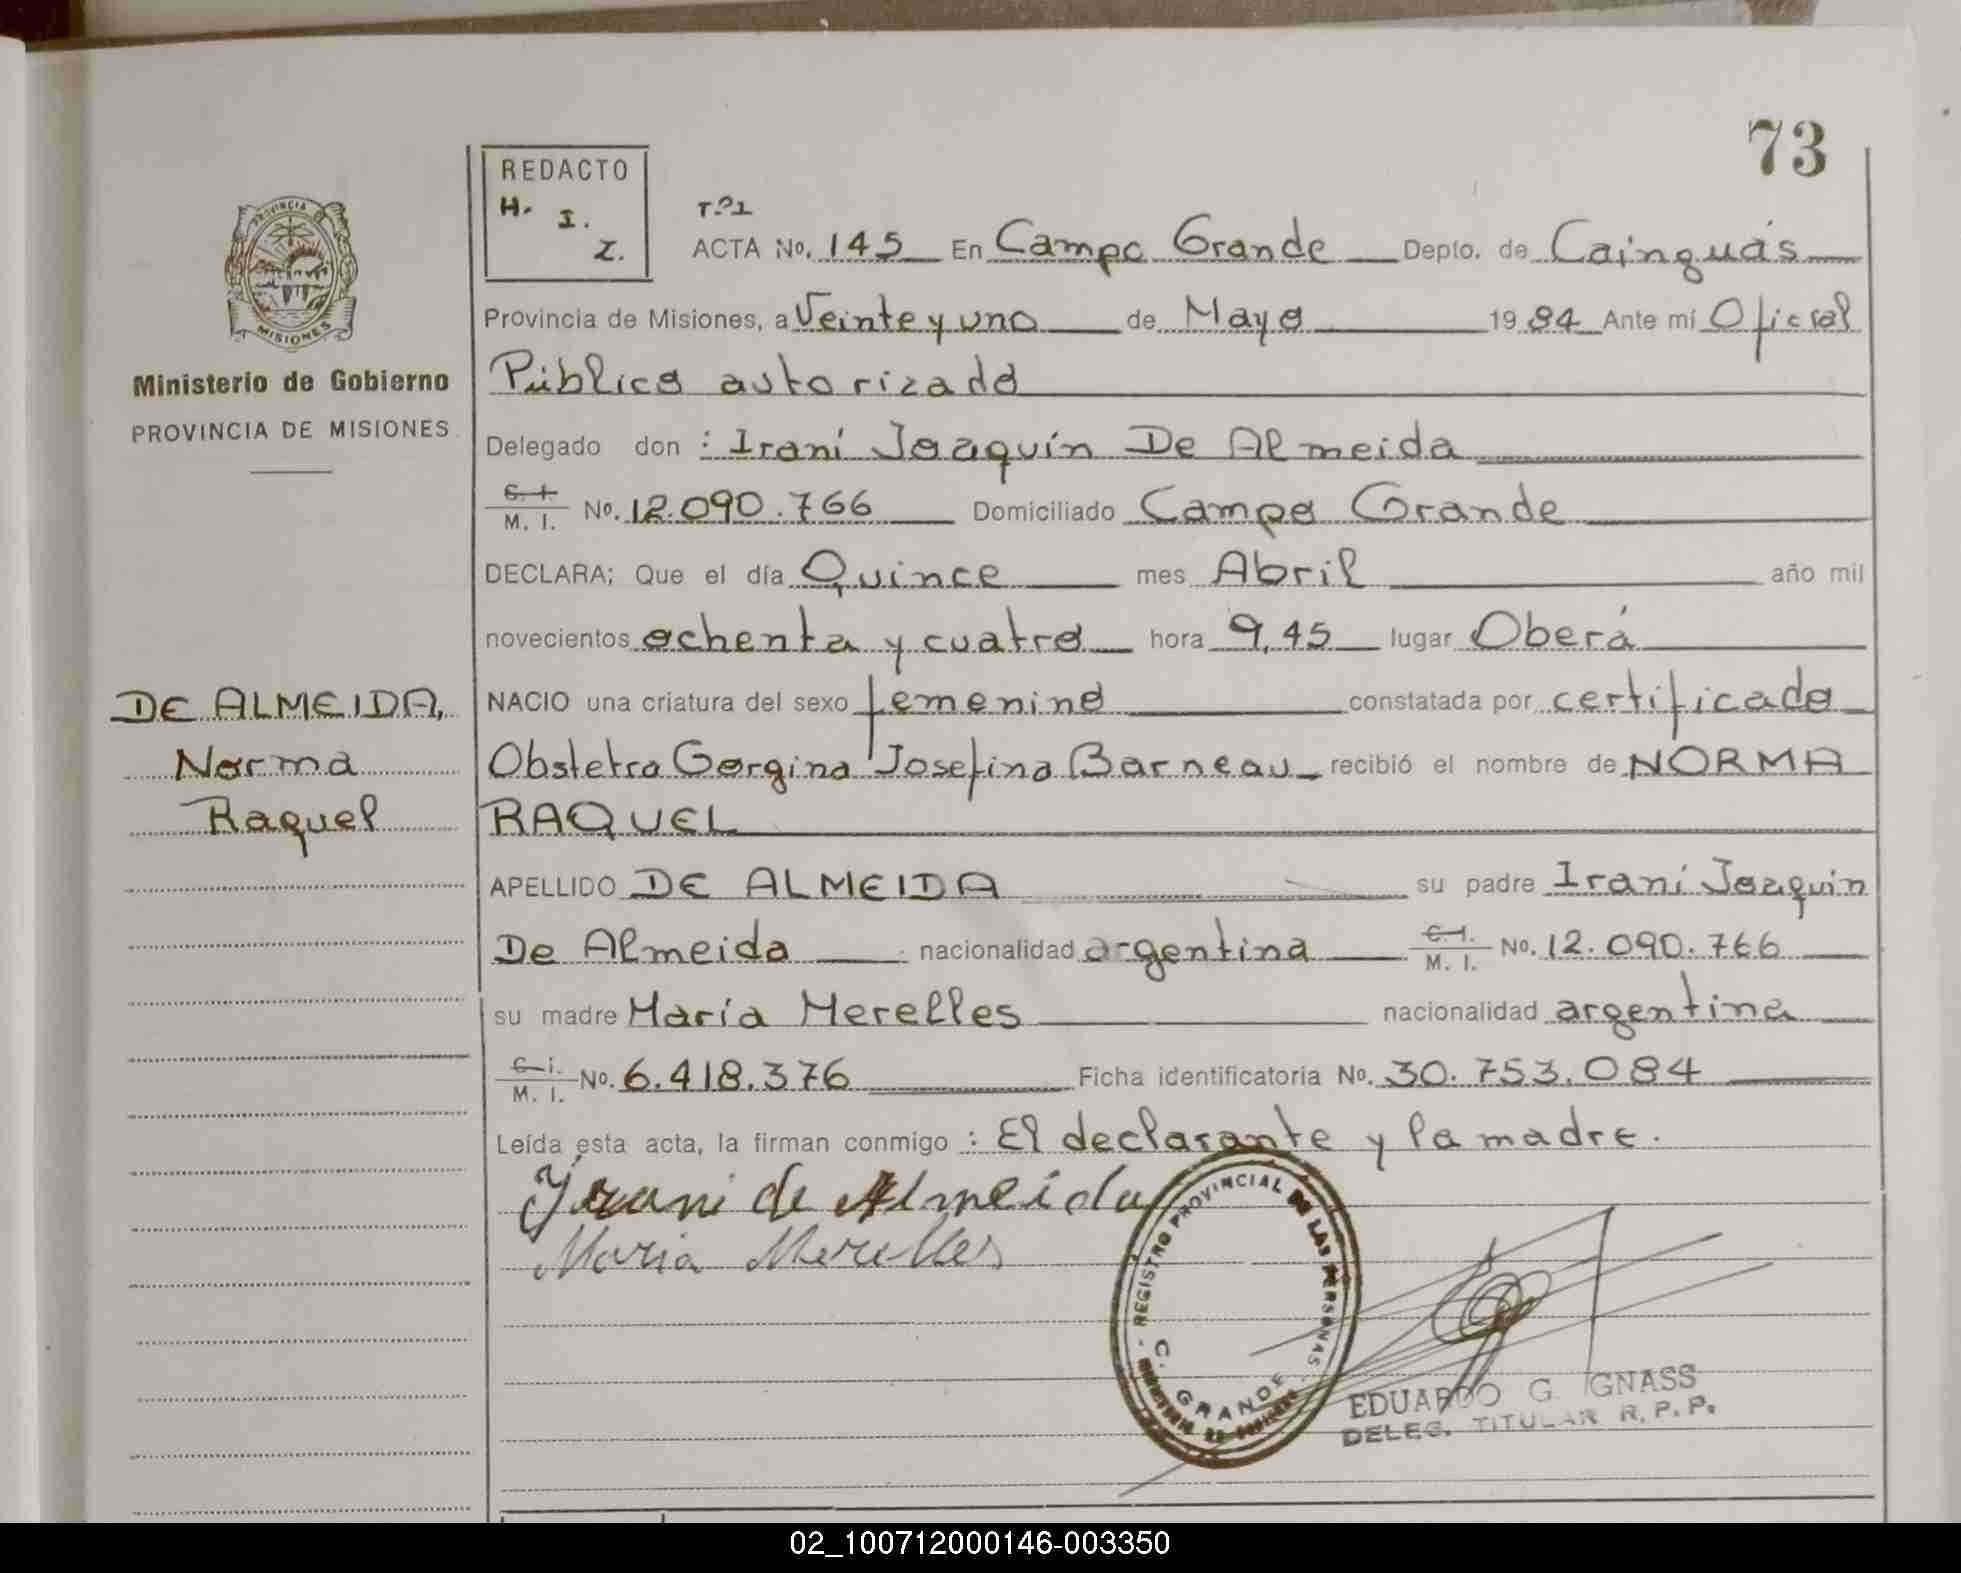 73
REDACTO
H. I. Z.
PROVINCIA
MISIONES
Ministerio de Gobierno
PROVINCIA DE MISIONES
Tº1
ACTA No. 145 En Campo Grande Depto. de Cainguás
Provincia de Misiones, a Veinte y uno de Mayo 1984 Ante mí Oficial
Público autorizado
Delegado don : Irani Joaquín De Almeida
C. I. M. I. No. 12.090.766 Domiciliado Campo Grande
DECLARA; Que el día Quince mes Abril año mil
novecientos ochenta y cuatro hora 9,45 lugar Oberá
DE ALMEIDA,
Norma
Raquel
NACIO una criatura del sexo femenino constatada por certificado
Obstetra Gorgina Josefina Barneau recibió el nombre de NORMA
RAQUEL
APELLIDO DE ALMEIDA su padre Irani Joaquín
De Almeida nacionalidad argentina C. I. M. I. No. 12.090.766
su madre María Merelles nacionalidad argentina
C. I. M. I. No. 6.418.376 Ficha identificatoria No. 30.753.084
Leída esta acta, la firman conmigo : El declarante y la madre.
Yrani de Almeida
Maria Merelles
REGISTRO PROVINCIAL DE LAS PERSONAS
C. GRANDE
EDUARDO G. GNASS
DELEG. TITULAR R. P. P.
02_100712000146-003350